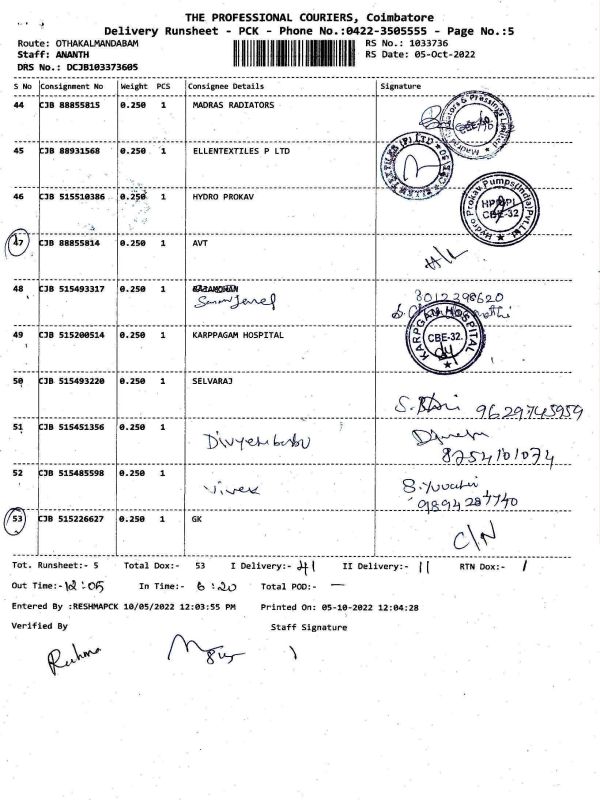 THE PROFESSIONAL COURIERS, Coimbatore
Delivery Runsheet - PCK - Phone No.:0422-3505555 - Page No.:5
Route: OTHAKALMANDABAM RS No.: 1033736
Staff: ANANTH RS Date: 05-Oct-2022
DRS No.: DCJB103373605
S No Consignment No Weight PCS Consignee Details Signature
44 CJB 88855815 0.250 1 MADRAS RADIATORS
45 CJB 88931568 0.250 1 ELLENTEXTILES P LTD
46 CJB 515510386 0.250 1 HYDRO PROKAV
Hydro Prokav Pumps(India)Pvt.Ltd.
CBE-32
47 CJB 88855814 0.250 1 AVT
48 CJB 515493317 0.250 1 RAJAMOHAN 8012398620
49 CJB 515200514 0.250 1 KARPPAGAM HOSPITAL
KARPGAM HOSPITAL
CBE-32.
50 CJB 515493220 0.250 1 SELVARAJ
9629745959
51 CJB 515451356 0.250 1
8254101074
52 CJB 515485598 0.250 1 Vivek
53 CJB 515226627 0.250 1 GK C/N
Tot. Runsheet:- 5 Total Dox:- 53 I Delivery:- 41 II Delivery:- 11 RTN Dox:- 1
Out Time:- 12:05 In Time:- 6:20 Total POD:- —
Entered By :RESHMAPCK 10/05/2022 12:03:55 PM Printed On: 05-10-2022 12:04:28
Verified By Staff Signature